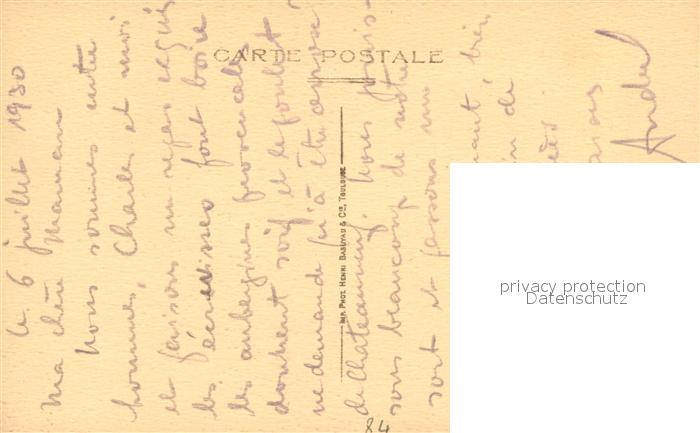 CARTE POSTALE
IMP. PHOT. HENRI BASUYAU & Cie, TOULOUSE
le 6 juillet 1930
Ma chère Maman
Nous sommes entre
hommes, Charles et moi
et faisons un repas exquis
les écrevisses font boire
les aubergines provençales
donnent soif et le poulet
ne demande qu'à être arrosé
de Chateauneuf. Nous
sous beaucoup de notre
sort et
bien
André
84
privacy protection
Datenschutz